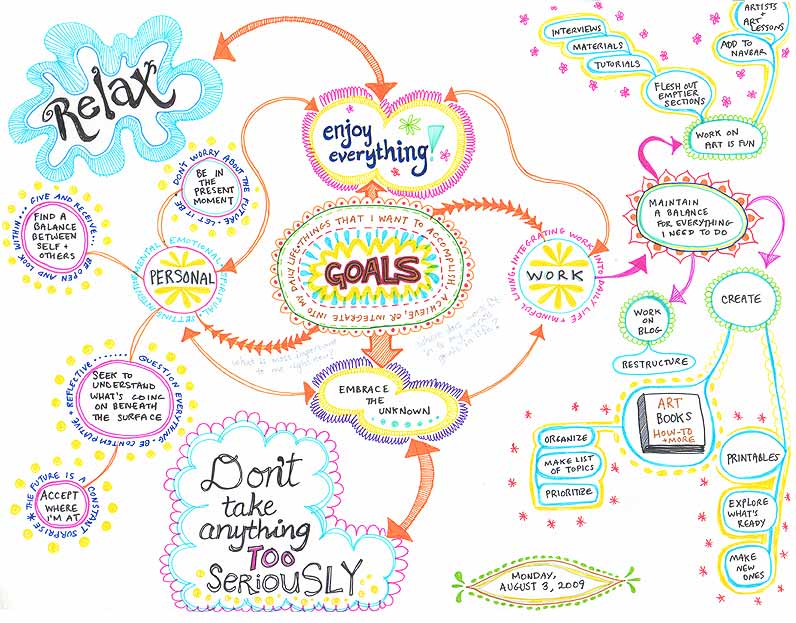 Relax
enjoy
everything!
INTERVIEWS
MATERIALS
TUTORIALS
FLESH OUT
EMPTIER
SECTIONS
ARTISTS
+
ART
LESSONS
ADD TO
NAVBAR
WORK ON
ART IS FUN
DON'T WORRY ABOUT THE FUTURE • LET IT BE
BE IN
THE
PRESENT
MOMENT
GIVE AND RECEIVE... BE OPEN AND LOOK WITHIN...
FIND A
BALANCE
BETWEEN
SELF +
OTHERS
PERSONAL
THINGS THAT I WANT TO ACCOMPLISH, ACHIEVE, OR INTEGRATE INTO MY DAILY LIFE
GOALS
INTEGRATING WORK INTO DAILY LIFE + MINDFUL LIVING
WORK
MAINTAIN
A BALANCE
FOR EVERYTHING
I NEED TO DO
WORK
ON
BLOG
RESTRUCTURE
CREATE
what is most important
to me right now?
EMBRACE
THE
UNKNOWN
QUESTION EVERYTHING • BE CONTEMPLATIVE + REFLECTIVE
SEEK TO
UNDERSTAND
WHAT'S GOING
ON BENEATH
THE SURFACE
THE FUTURE IS A CONSTANT SURPRISE
ACCEPT
WHERE
I'M AT
Don't
take
anything
TOO
SERIOUSLY
ART
BOOKS
HOW-TO
+ MORE
ORGANIZE
MAKE LIST
OF TOPICS
PRIORITIZE
PRINTABLES
EXPLORE
WHAT'S
READY
MAKE
NEW
ONES
MONDAY,
AUGUST 3, 2009